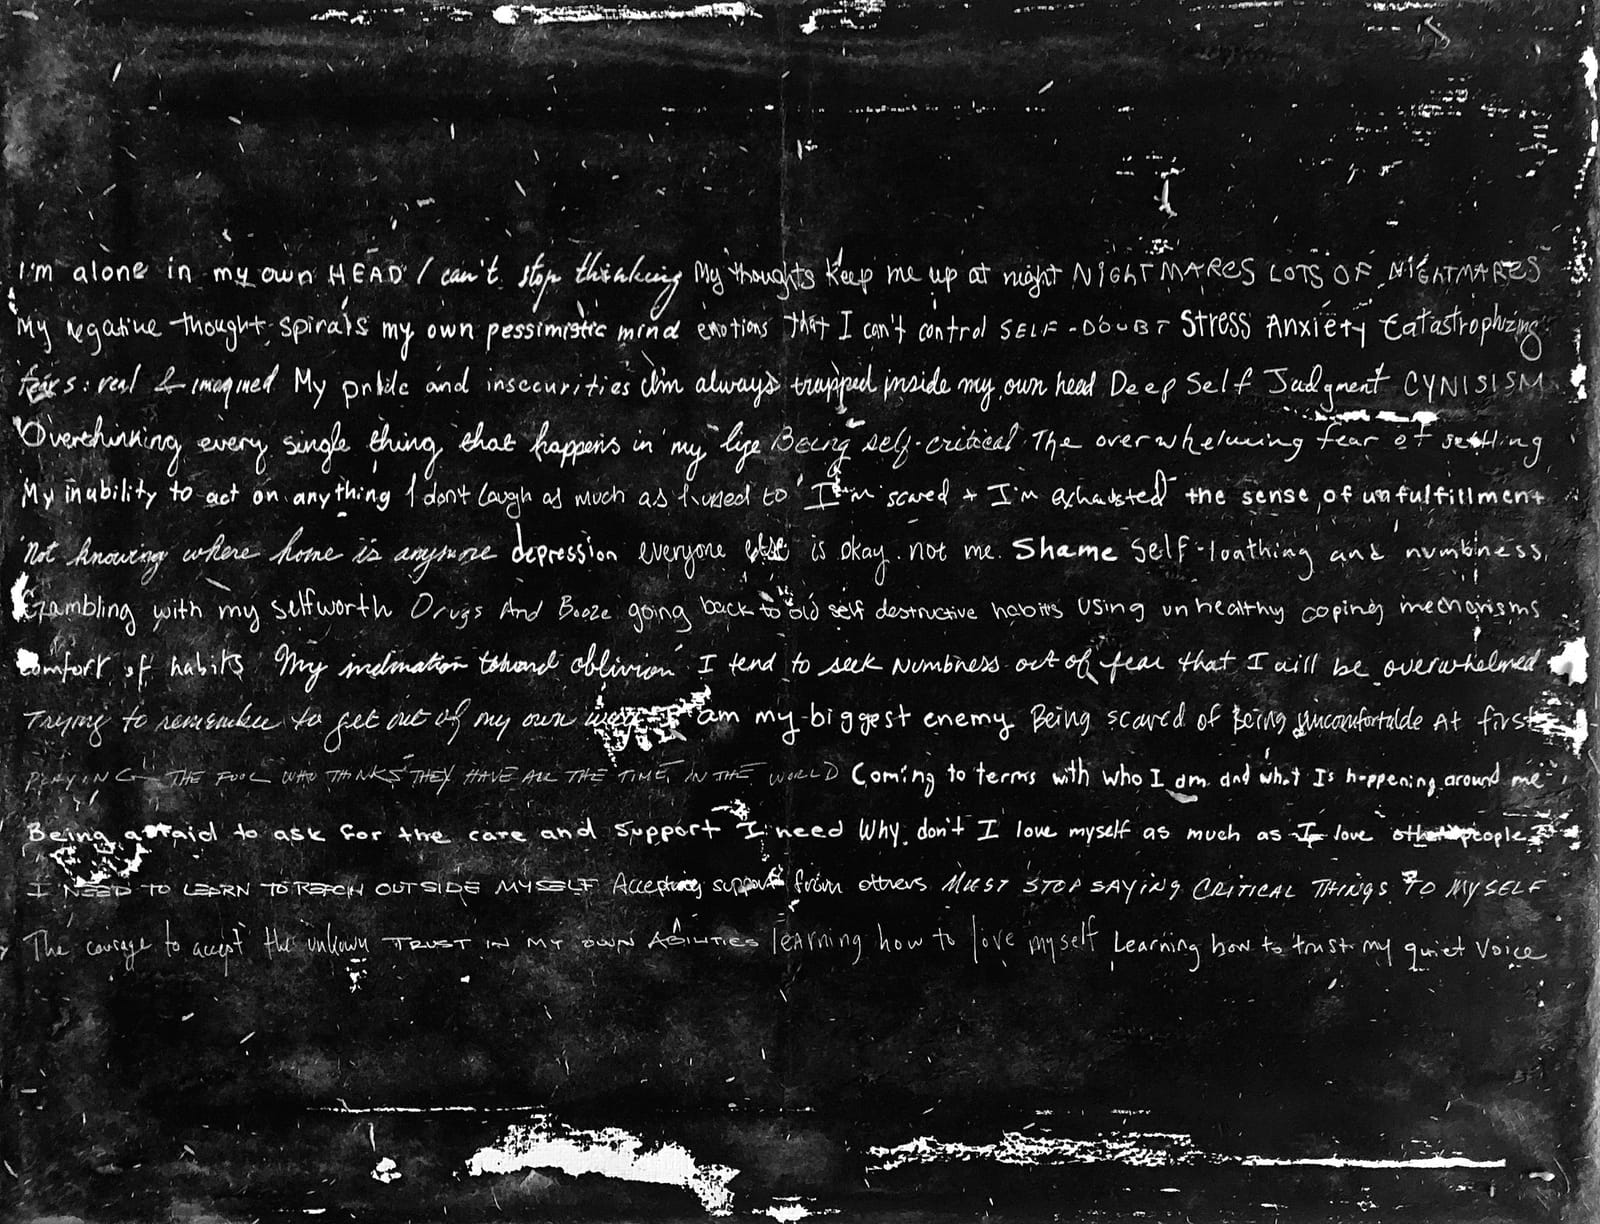 I'm alone in my own HEAD I can't stop thinking My thoughts keep me up at night NIGHTMARES LOTS OF NIGHTMARES
My negative thought spirals my own pessimistic mind emotions that I can't control SELF-DOUBT Stress Anxiety Catastrophizing
fears: real & imagined My pride and insecurities I'm always trapped inside my own head Deep Self Judgment CYNISISM
Overthinking every single thing that happens in my life Being self-critical The overwhelming fear of settling
My inability to act on anything I don't laugh as much as I used to I'm scared + I'm exhausted the sense of unfulfillment
Not knowing where home is anymore depression everyone else is okay. not me. Shame Self-loathing and numbness
Gambling with my selfworth Drugs And Booze going back to old self destructive habits Using unhealthy coping mechanisms
Comfort of habits My inclination toward oblivion I tend to seek numbness out of fear that I will be overwhelmed
Trying to remember to get out of my own way I am my biggest enemy Being scared of being uncomfortable At first
PLAYING THE FOOL WHO THINKS THEY HAVE ALL THE TIME IN THE WORLD Coming to terms with who I am and what Is happening around me
Being afraid to ask for the care and support I need Why don't I love myself as much as I love other people
I NEED TO LEARN TO REACH OUTSIDE MYSELF Accepting support from others MUST STOP SAYING CRITICAL THINGS TO MYSELF
The courage to accept the unkown TRUST IN MY OWN ABILITIES learning how to love myself Learning how to trust my quiet voice